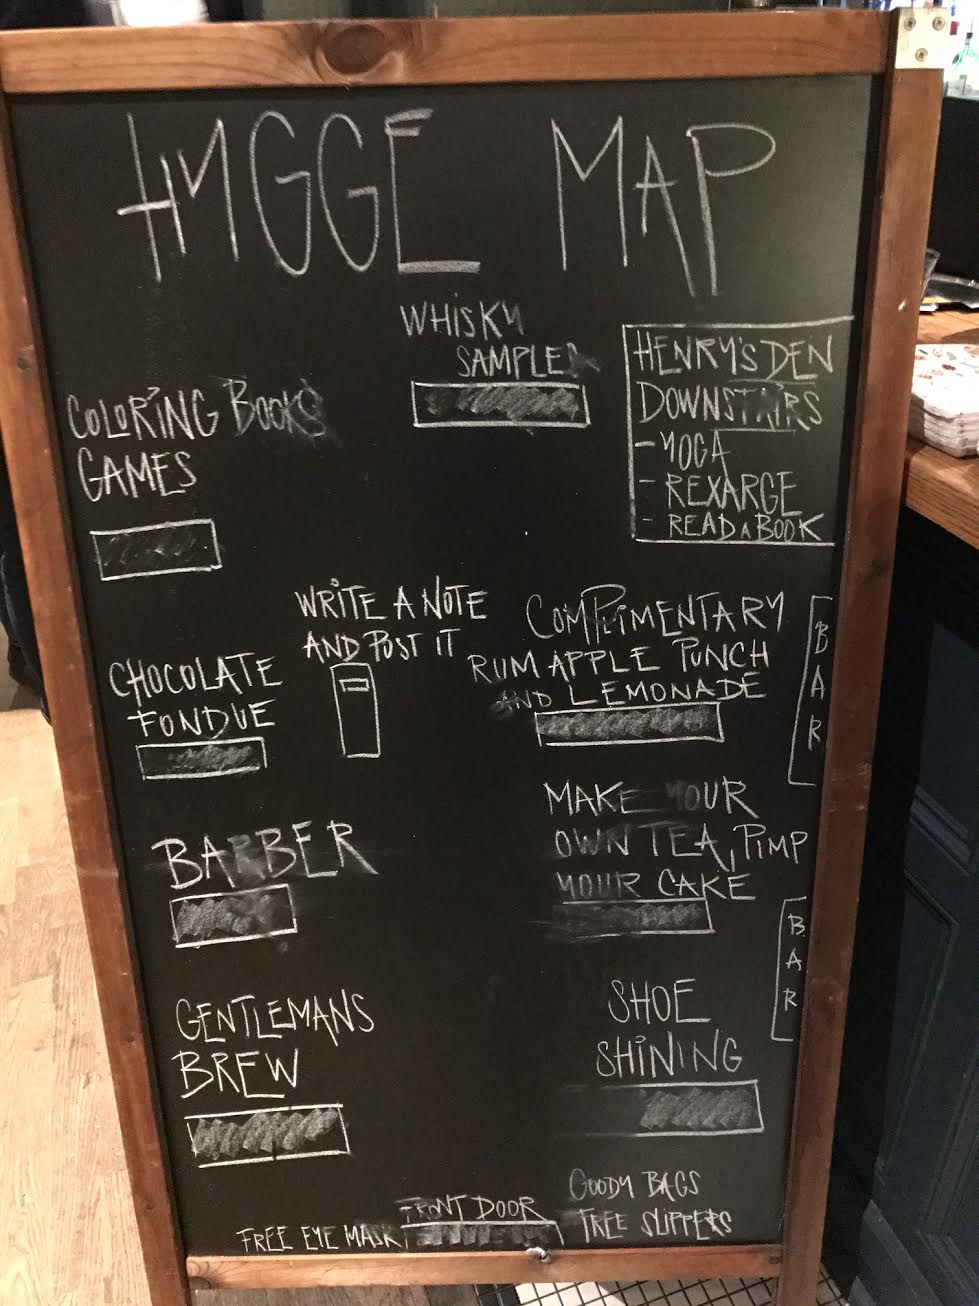 HYGGE MAP
WHISKY
SAMPLE
HENRY'S DEN
DOWNSTAIRS
- YOGA
- REXARGE
- READ A BOOK
COLORING BOOKS
GAMES
WRITE A NOTE
AND POST IT
COMPLIMENTARY
RUM APPLE PUNCH
AND LEMONADE
BAR
CHOCOLATE
FONDUE
MAKE YOUR
OWN TEA, PIMP
YOUR CAKE
BAR
BARBER
GENTLEMANS
BREW
SHOE
SHINING
GOODY BAGS
FREE SLIPPERS
FRONT DOOR
FREE EYE MASK